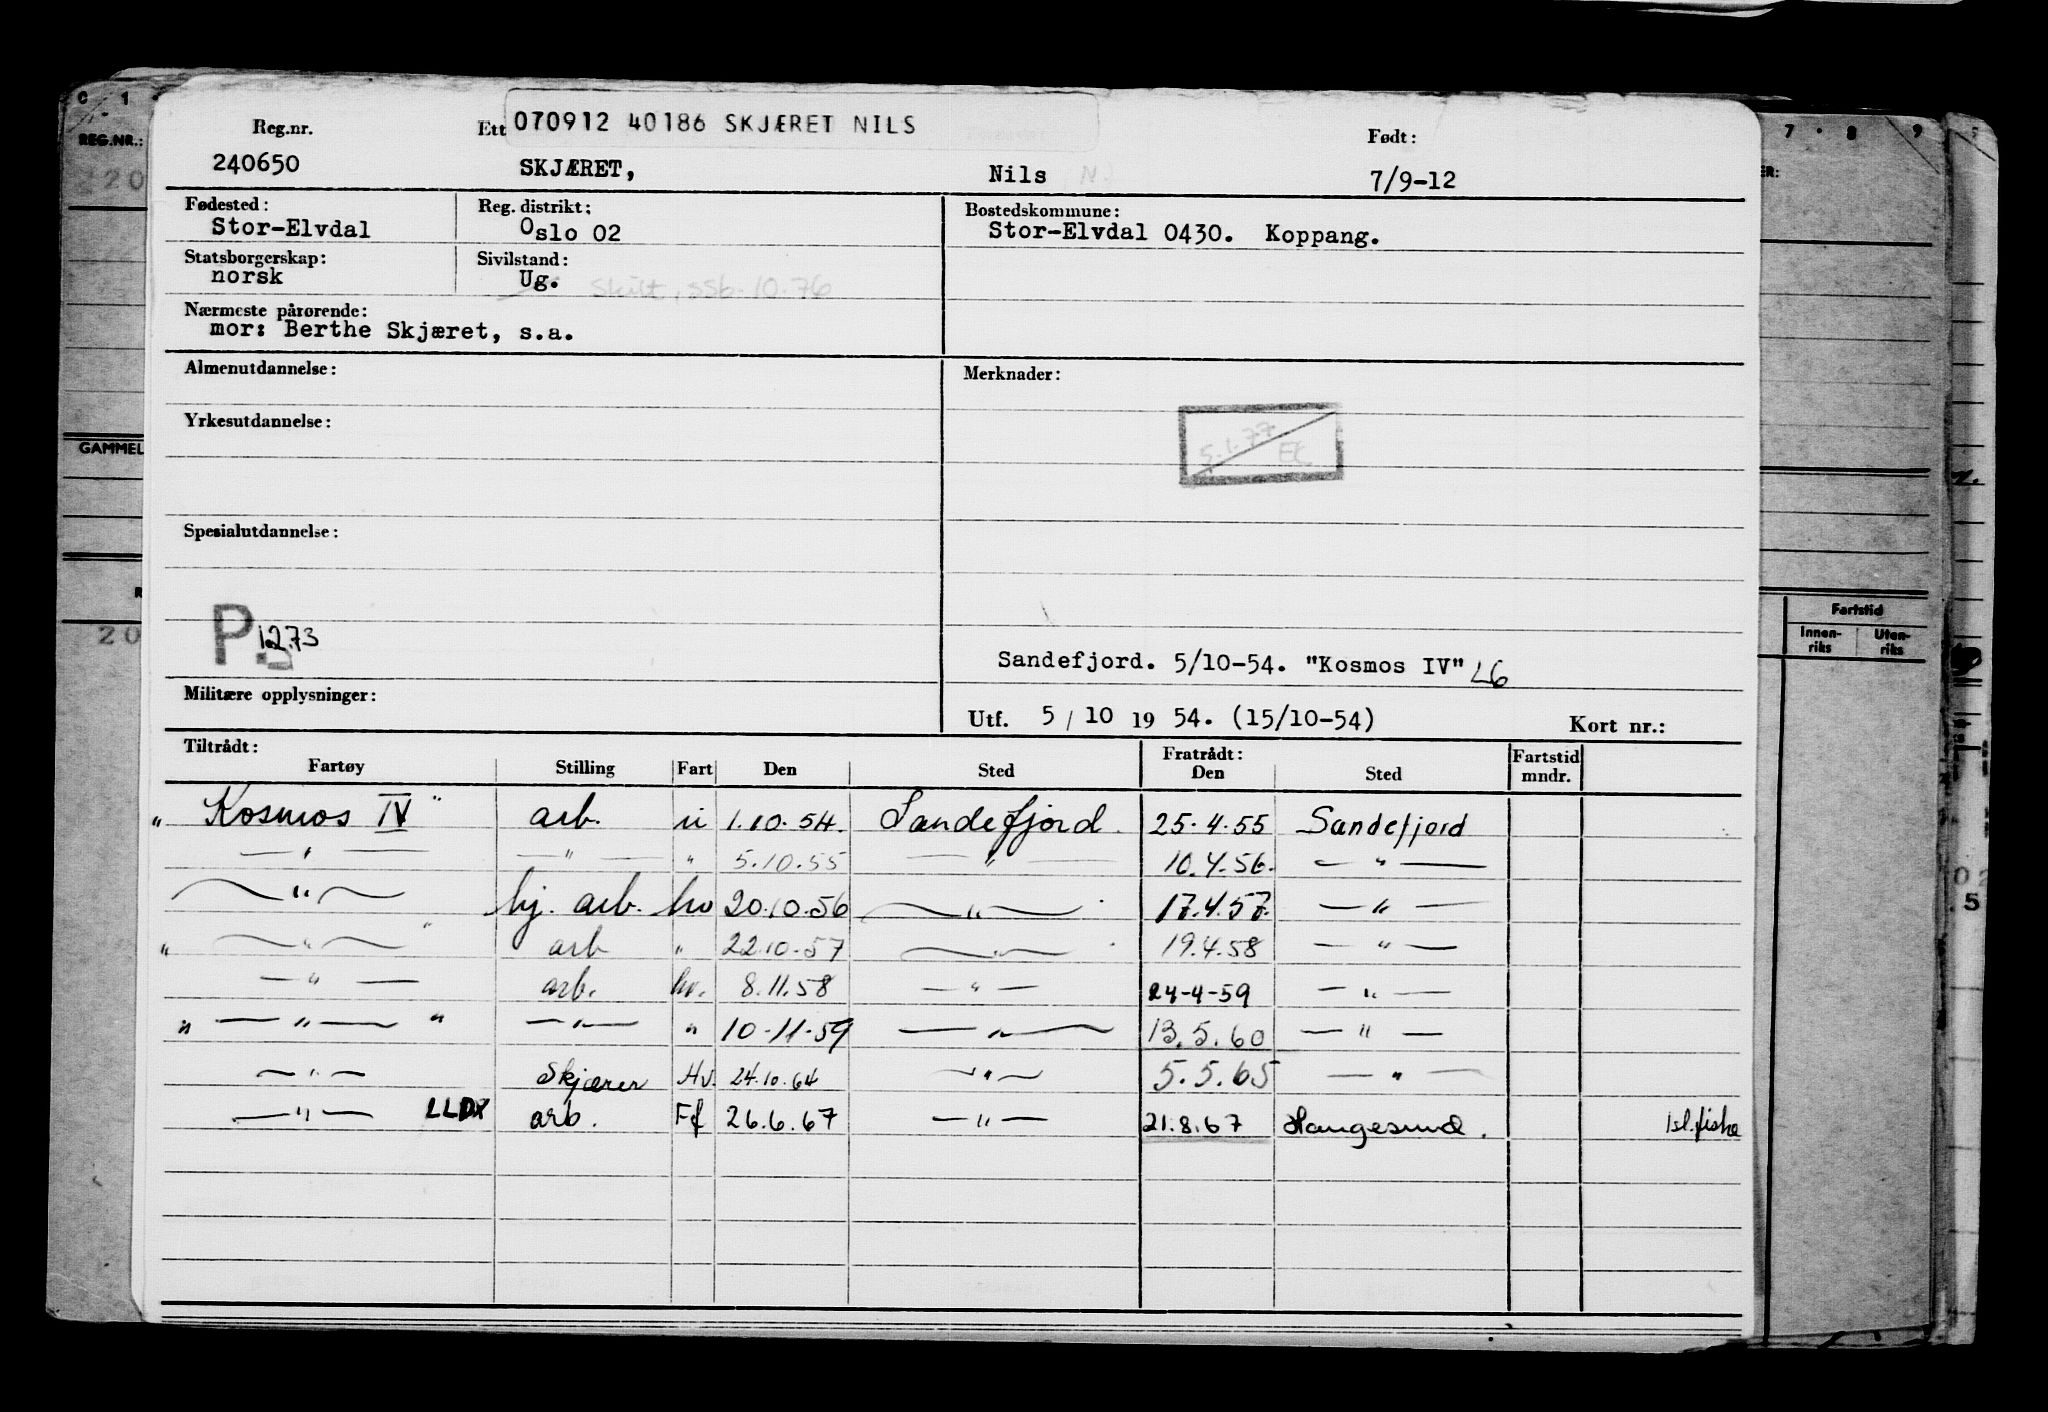 070912 40186 SKJÆRET NILS
Reg.nr. Ett Født:
240650 SKJÆRET, Nils 7/9-12
Fødested: Reg. distrikt: Bostedskommune:
Stor-Elvdal Oslo 02 Stor-Elvdal 0430. Koppang.
Statsborgerskap: Sivilstand:
norsk Ug. Skilt, SSb-10-76
Nærmeste pårørende:
mor: Berthe Skjæret, s.a.
Almenutdannelse: Merknader:
Yrkesutdannelse:
5.1.77 EC
Spesialutdannelse:
P. 12.73
Sandefjord. 5/10-54. "Kosmos IV" L6
Militære opplysninger:
Utf. 5 / 10 19 54. (15/10-54) Kort nr.:
Tiltrådt: Fratrådt: Fartstid
Fartøy Stilling Fart Den Sted Den Sted mndr.
" Kosmos IV " arb. u 1.10.54. Sandefjord. 25.4.55 Sandefjord
— " — — " — " 5.10.55 — " — 10.4.56. — " —
— " — hj. arb. hv 20.10.56 — " — 17.4.57. — " —
" — " — " arb " 22.10.57 — " — 19.4.58 — " —
— " — arb. hv. 8.11.58 — " — 24-4-59 — " —
" — " — " — " — " 10-11-59 — " — 13.5.60 — " —
— " — Skjærer Hv. 24.10.64 — " — 5.5.65 — " —
— " — LLDX arb. Ff 26.6.67 — " — 21.8.67 Haugesund. Isl.fiske
C 1
REG.NR.:
220
GAMMEL
R
20
7 • 8 9
ER:
Fartstid
Innen-
riks
Uten-
riks
02
5